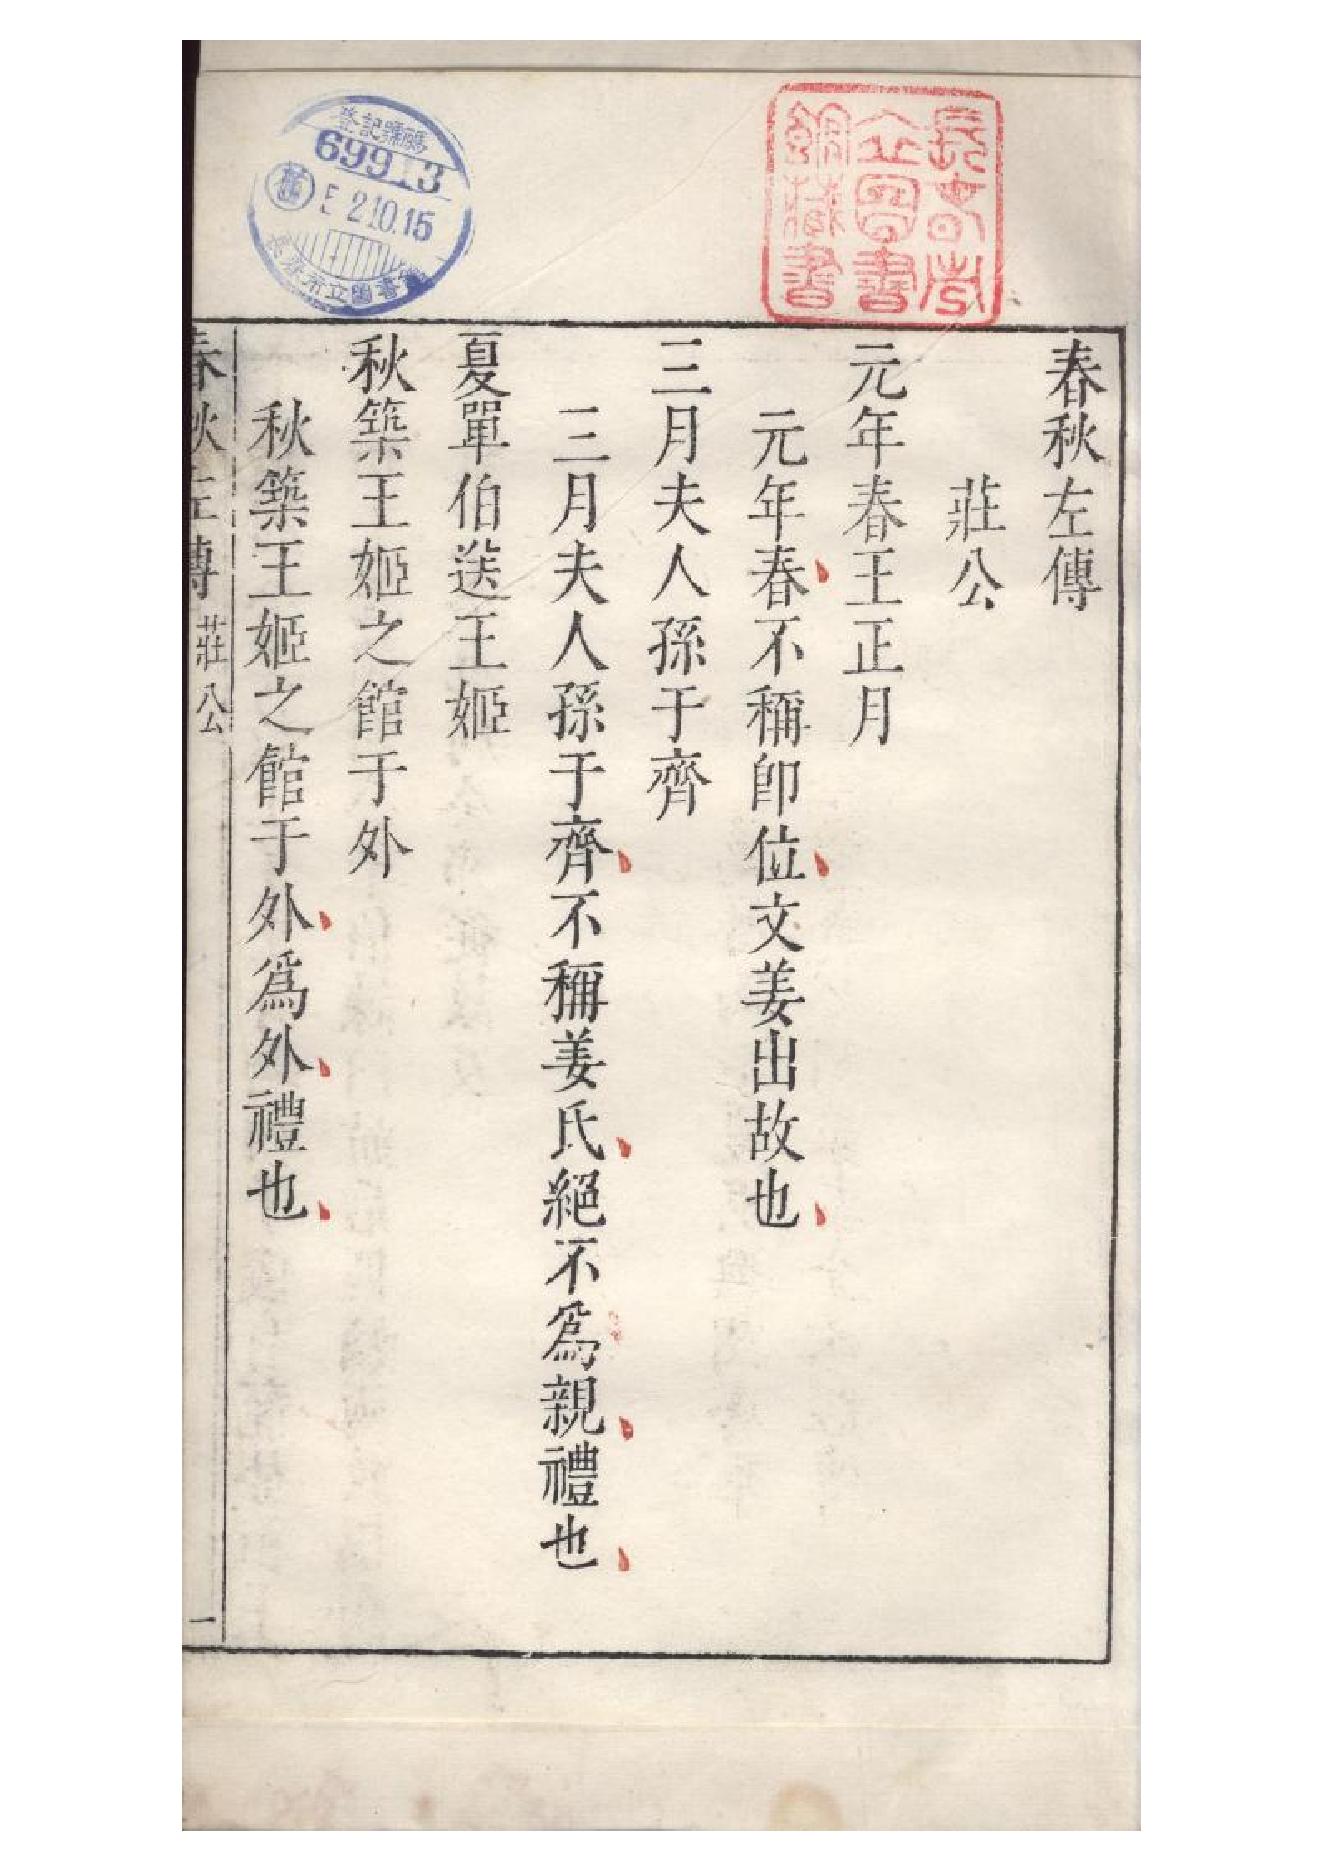 春秋左傳
莊公
元年春王正月
元年春不稱卽位文姜出故也
三月夫人孫于齊
三月夫人孫于齊不稱姜氏絕不爲親禮也
夏單伯送王姬
秋築王姬之館于外
秋築王姬之館于外爲外禮也
春秋左傳 莊公 一
長春市
立圖書
館藏書
登記號碼
69913
舊
5 2.10.15
長春市立圖書館